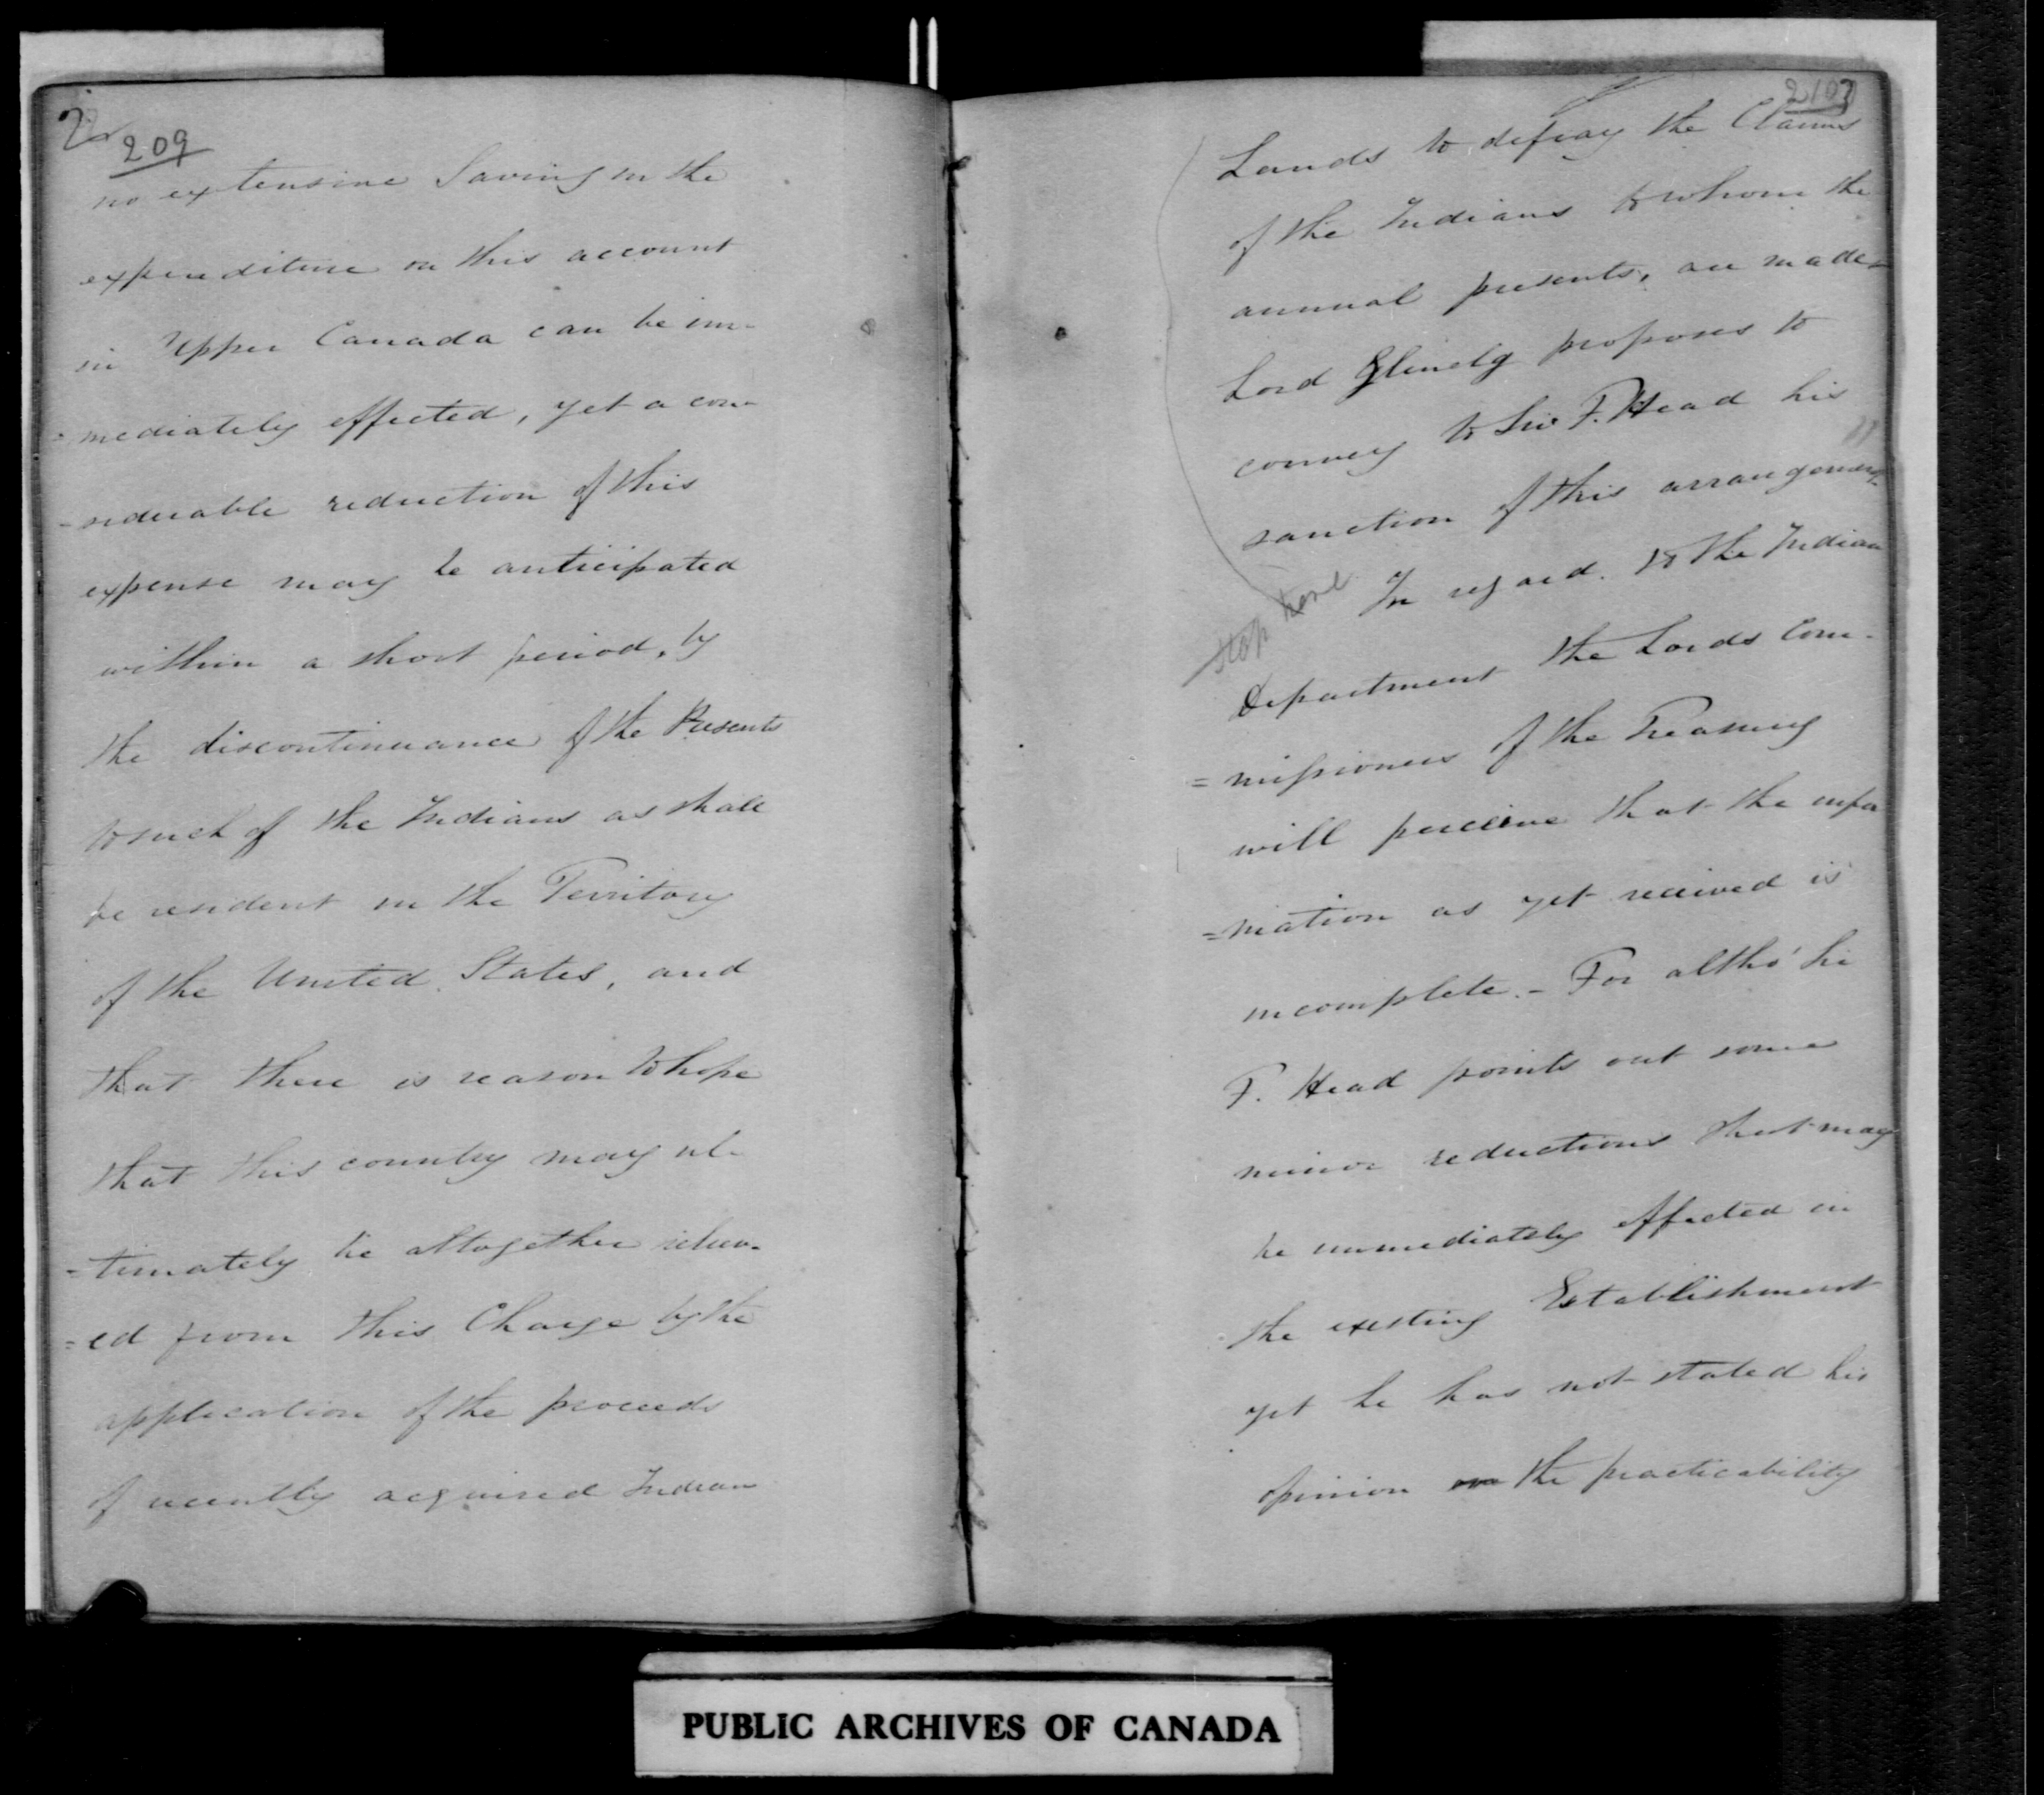 209
no extensive Saving in the
expenditure on this account
in Upper Canada can be im-
=mediately effected, yet a con-
-siderable reduction of this
expense may be anticipated
within a short period, by
the discontinuance of the Presents
to such of the Indians as shall
be resident in the Territory
of the United States, and
that there is reason to hope
that this country may ul-
=timately be altogether reliev-
=ed from this Charge by the
application of the proceeds
of recently acquired Indian
210
Lands to defray the Claims
of the Indians to whom the
annual presents, are made-
Lord Glenelg proposes to
convey to Sir F. Head his
sanction of this arrangement.
stop here
In regard to the Indian
Department the Lords Com-
=missioners of the Treasury
will perceive that the infor
=mation as yet received is
incomplete. - For altho' Sir
F. Head points out some
minor reductions that may
be immediately effected in
the existing Establishment
yet he has not stated his
opinion on the practicability
PUBLIC ARCHIVES OF CANADA